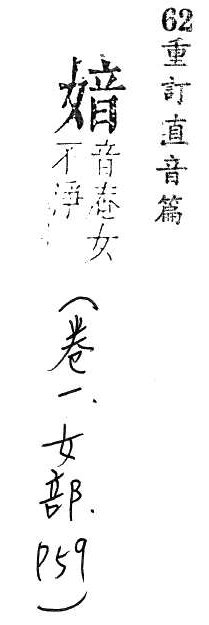 62重訂直音篇
㛺
音菴女
不淨
(卷一.女部.P59)